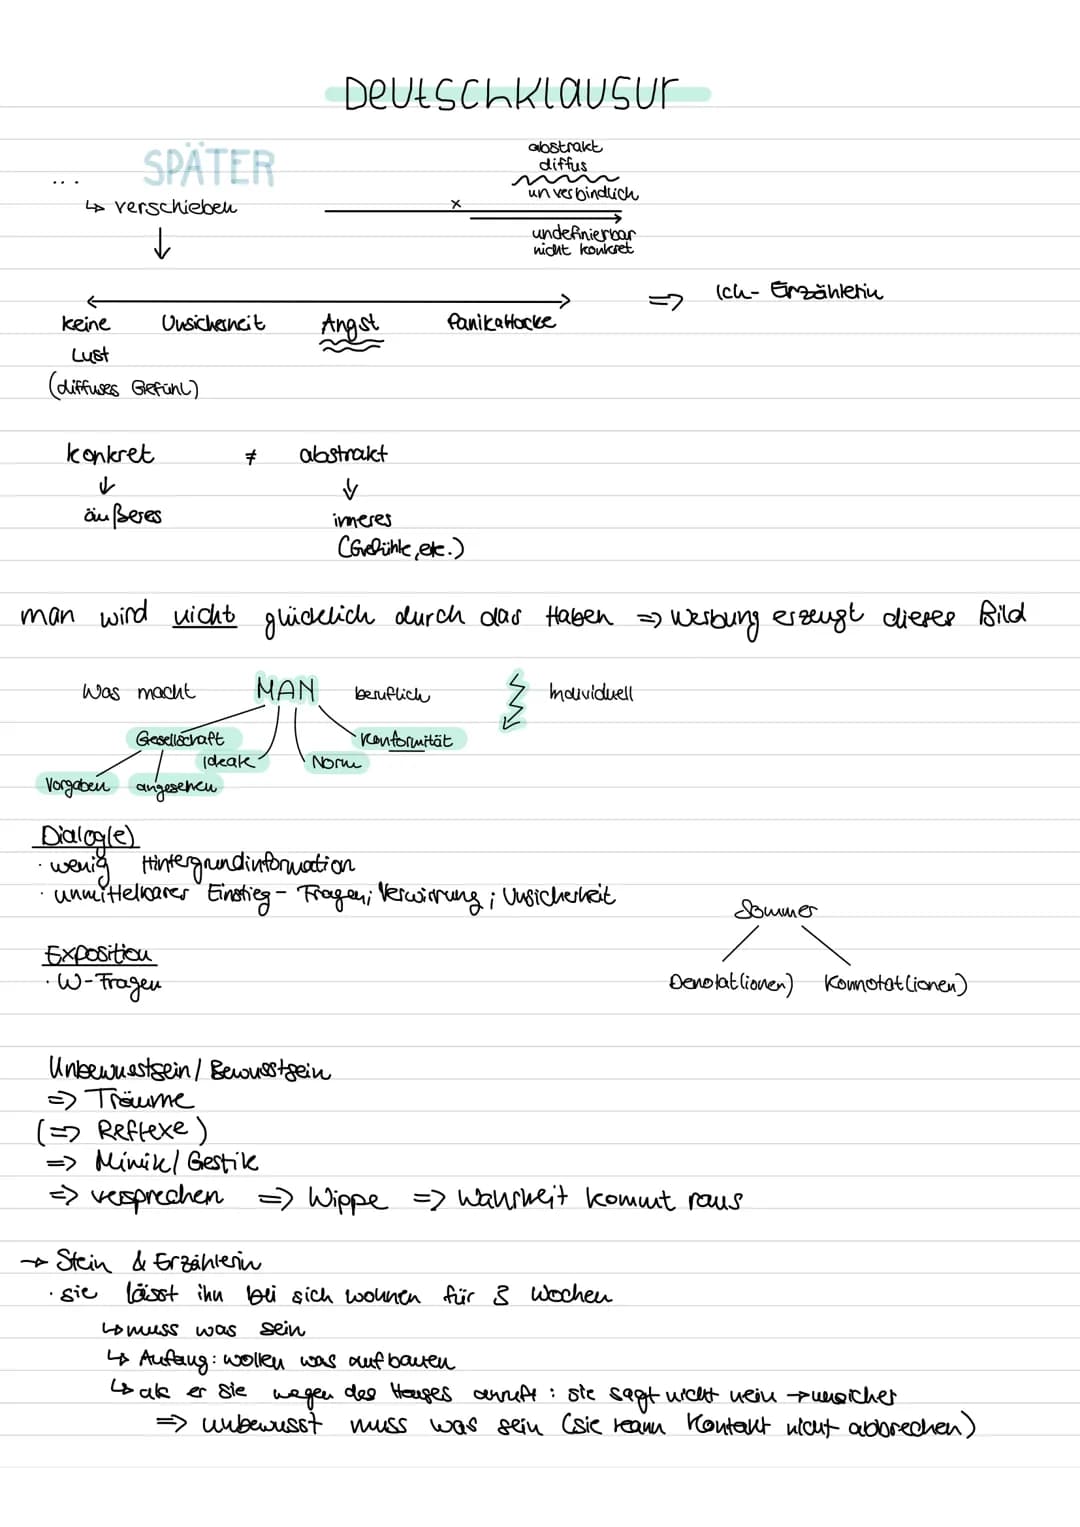 Deutschklausur
abstrakt
SPÄTER
diffus
...
unverbindlich
↳ verschieben
x
undefinierbar
nicht konkret
=> Ich-Erzählerin
keine Unsicherheit Angst Panikattacke
Lust
(diffuses Gefühl)
konkret ≠ abstrakt
äußeres
inneres
(Gefühle, etc.)
man wird nicht glücklich durch das Haben => Werbung erzeugt dieses Bild
Was macht MAN beruflich Individuell
Gesellschaft Konformität
Ideale Norm
Vorgaben angesehen
Dialog(e)
· wenig Hintergrundinformation
· unmittelbarer Einstieg - Fragen; Verwirrung; Unsicherheit
Sommer
Exposition
· W-Fragen
Denotat(ionen) Konnotat(ionen)
Unbewusstsein / Bewusstsein
=> Träume
(=> Reflexe)
=> Mimik / Gestik
=> versprechen => Wippe => Wahrheit kommt raus
→ Stein & Erzählerin
· sie lässt ihn bei sich wohnen für 3 Wochen
↳ muss was sein
↳ Anfang: wollen was aufbauen
↳ als er sie wegen des Hauses anruft: sie sagt nicht nein → unsicher
=> unbewusst muss was sein (sie kann Kontakt nicht abbrechen)